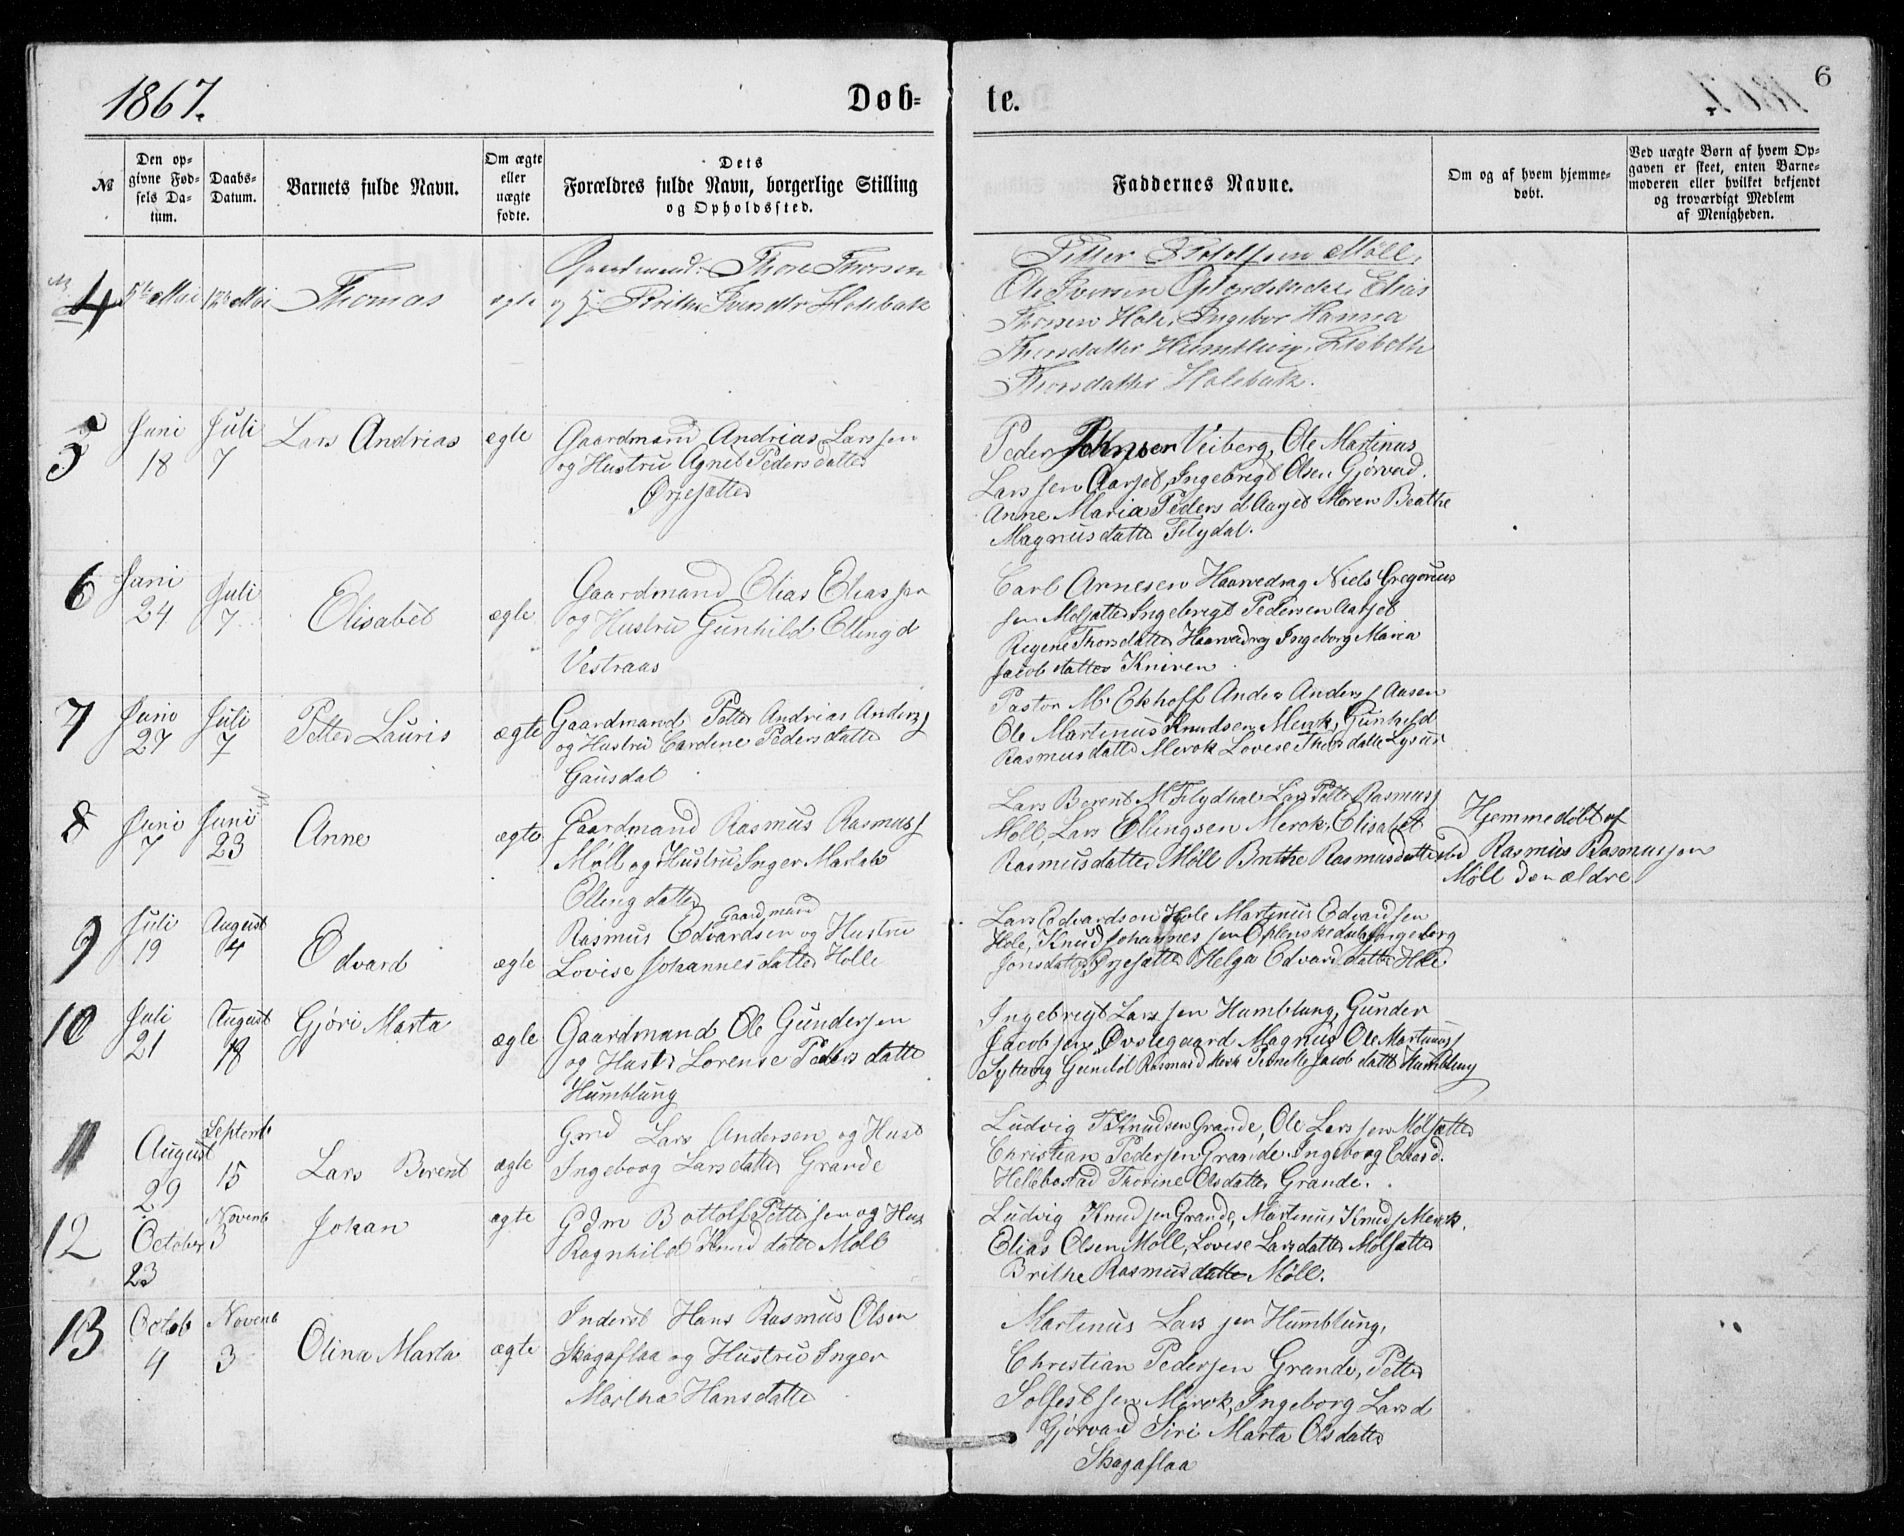 1867.
Døb-
te.
6
№
Den op-
givne Fød-
sels Da-
tum.
Daabs-
Datum.
Barnets fulde Navn.
Om ægte
eller
uægte
fødte.
Dets
Forældres fulde Navn, borgerlige Stilling
og Opholdssted.
Faddernes Navne.
Om og af hvem hjemme-
døbt.
Ved uægte Børn af hvem Op-
gaven er skeet, enten Barne-
moderen eller hvilket bekjendt
og troværdigt Medlem
af Menigheden.
4
5te Mai
12te Mai
Thomas
ægte
Gaardmand Thore Thorsen
og H. Brithe Iversdtr Holebak
Petter Møll,
Ole Iversen Elias
Thorsen Hole, Ingebor Hanna
Thorsdatter Humblung, Lisbeth
Thorsdatter Holebak.
5
Juni
18
Juli
7
Lars Andrias
ægte
Gaardmand Andrias Larssen
og Hustru Agnet Pedersdatter
Ørjesætter
Peder Johnsen Viiberg, Ole Martinus
Larssen Aarset, Ingebrigt Olsen Gjørvad.
Anne Maria Peders d Aarset Maren Beathe
Magnusdatter Flydal.
6
Juni
24
Juli
7
Elisabet
ægte
Gaardmand Elias Eliassen
og Hustru Gunhild Elling d
Vestraas
Carl Arnesen Haavedrag Niels Gregorius
sen Molsætter Ingebrigt Pedersen Aarset
Regene Thorsdatter Haavedrag Ingeborg Maria
Jacobsdatter Kniven.
7
Juni
27
Juli
7
Petter Lauris
ægte
Gaardmand Petter Andrias Anders s
og Hustru Cardene Pedersdatter
Gausdal
Pastor M. Ekhoff Anders Anders s Aasen
Ole Martinus Knudsen Merok, Gunhild
Rasmusdatter Merok Lovise Thorsdatter
8
Juni
7
Juni
23
Anne
ægte
Gaardmand Rasmus Rasmus s
Møll og Hustru Inger Marta
Ellingdatter
Lars Berent M Flydhal Lars Petter Rasmus s
Møll, Lars Ellingsen Merok, Elisabet
Rasmusdatter Møll Brithe Rasmusdatter
Hjemmedøbt af
Rasmus Rasmussen
Møll den ældre
9
Juli
19
August
4
Edvard
ægte
Gaardmand
Rasmus Edvardsen og Hustru
Lovise Johannesdatter Holle
Lars Edvardsen Hole Martinus Edvardsen
Hole, Knud Johannessen Ingeborg
Jonsdatter Ørjesætter Helga Edvarddatter Hole.
10
Juli
21
August
18
Gjøri Marta
ægte
Gaardmand Ole Gundersen
og Hustr Lorense Pedersdatter
Humblung
Ingebrigt Larssen Humblung, Gunder
Jacobsen Øvstegaard Magnus Ole Martinus s
Sylteng Gunild Rasmus d Merk Pernelle Jacobdatter Humblung
11
August
29
Septemb
15
Lars Berent
ægte
Gmd Lars Andersen og Hust
Ingeborg Larsdatter Grande
Ludvig Knudsen Grande, Ole Larssen Molsætter
Christian Pedersen Grande Ingeborg Edvard.
Hellebostad Thorine Olsdatter Grande.
12
October
23
Novemb
3
Johan
ægte
Gdm Bottolf Pettersen og Hus
Ragnhild Knuddatter Moll
Ludvig Knudsen Grande, Martinus Knud s Merok,
Elias Olsen Moll, Lovise Larsdatter Molsætter
Brithe Rasmusdatter Møll.
13
Octob
4
Novemb
3
Olina Marta
ægte
Inderst Hans Rasmus Olsen
Skagaflaa og Hustru Inger
Martha Hansdatter
Martinus Larssen Humblung,
Christian Pedersen Grande, Petter
Solfestsen Merok, Ingeborg Lars d
Gjørvad Siri Marta Olsdatter
Skagaflaa